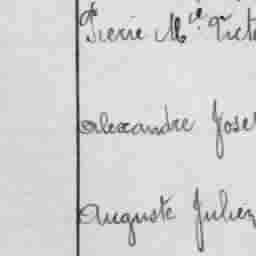 Pierre Mie Vict
Alexandre Jose
Auguste Julien